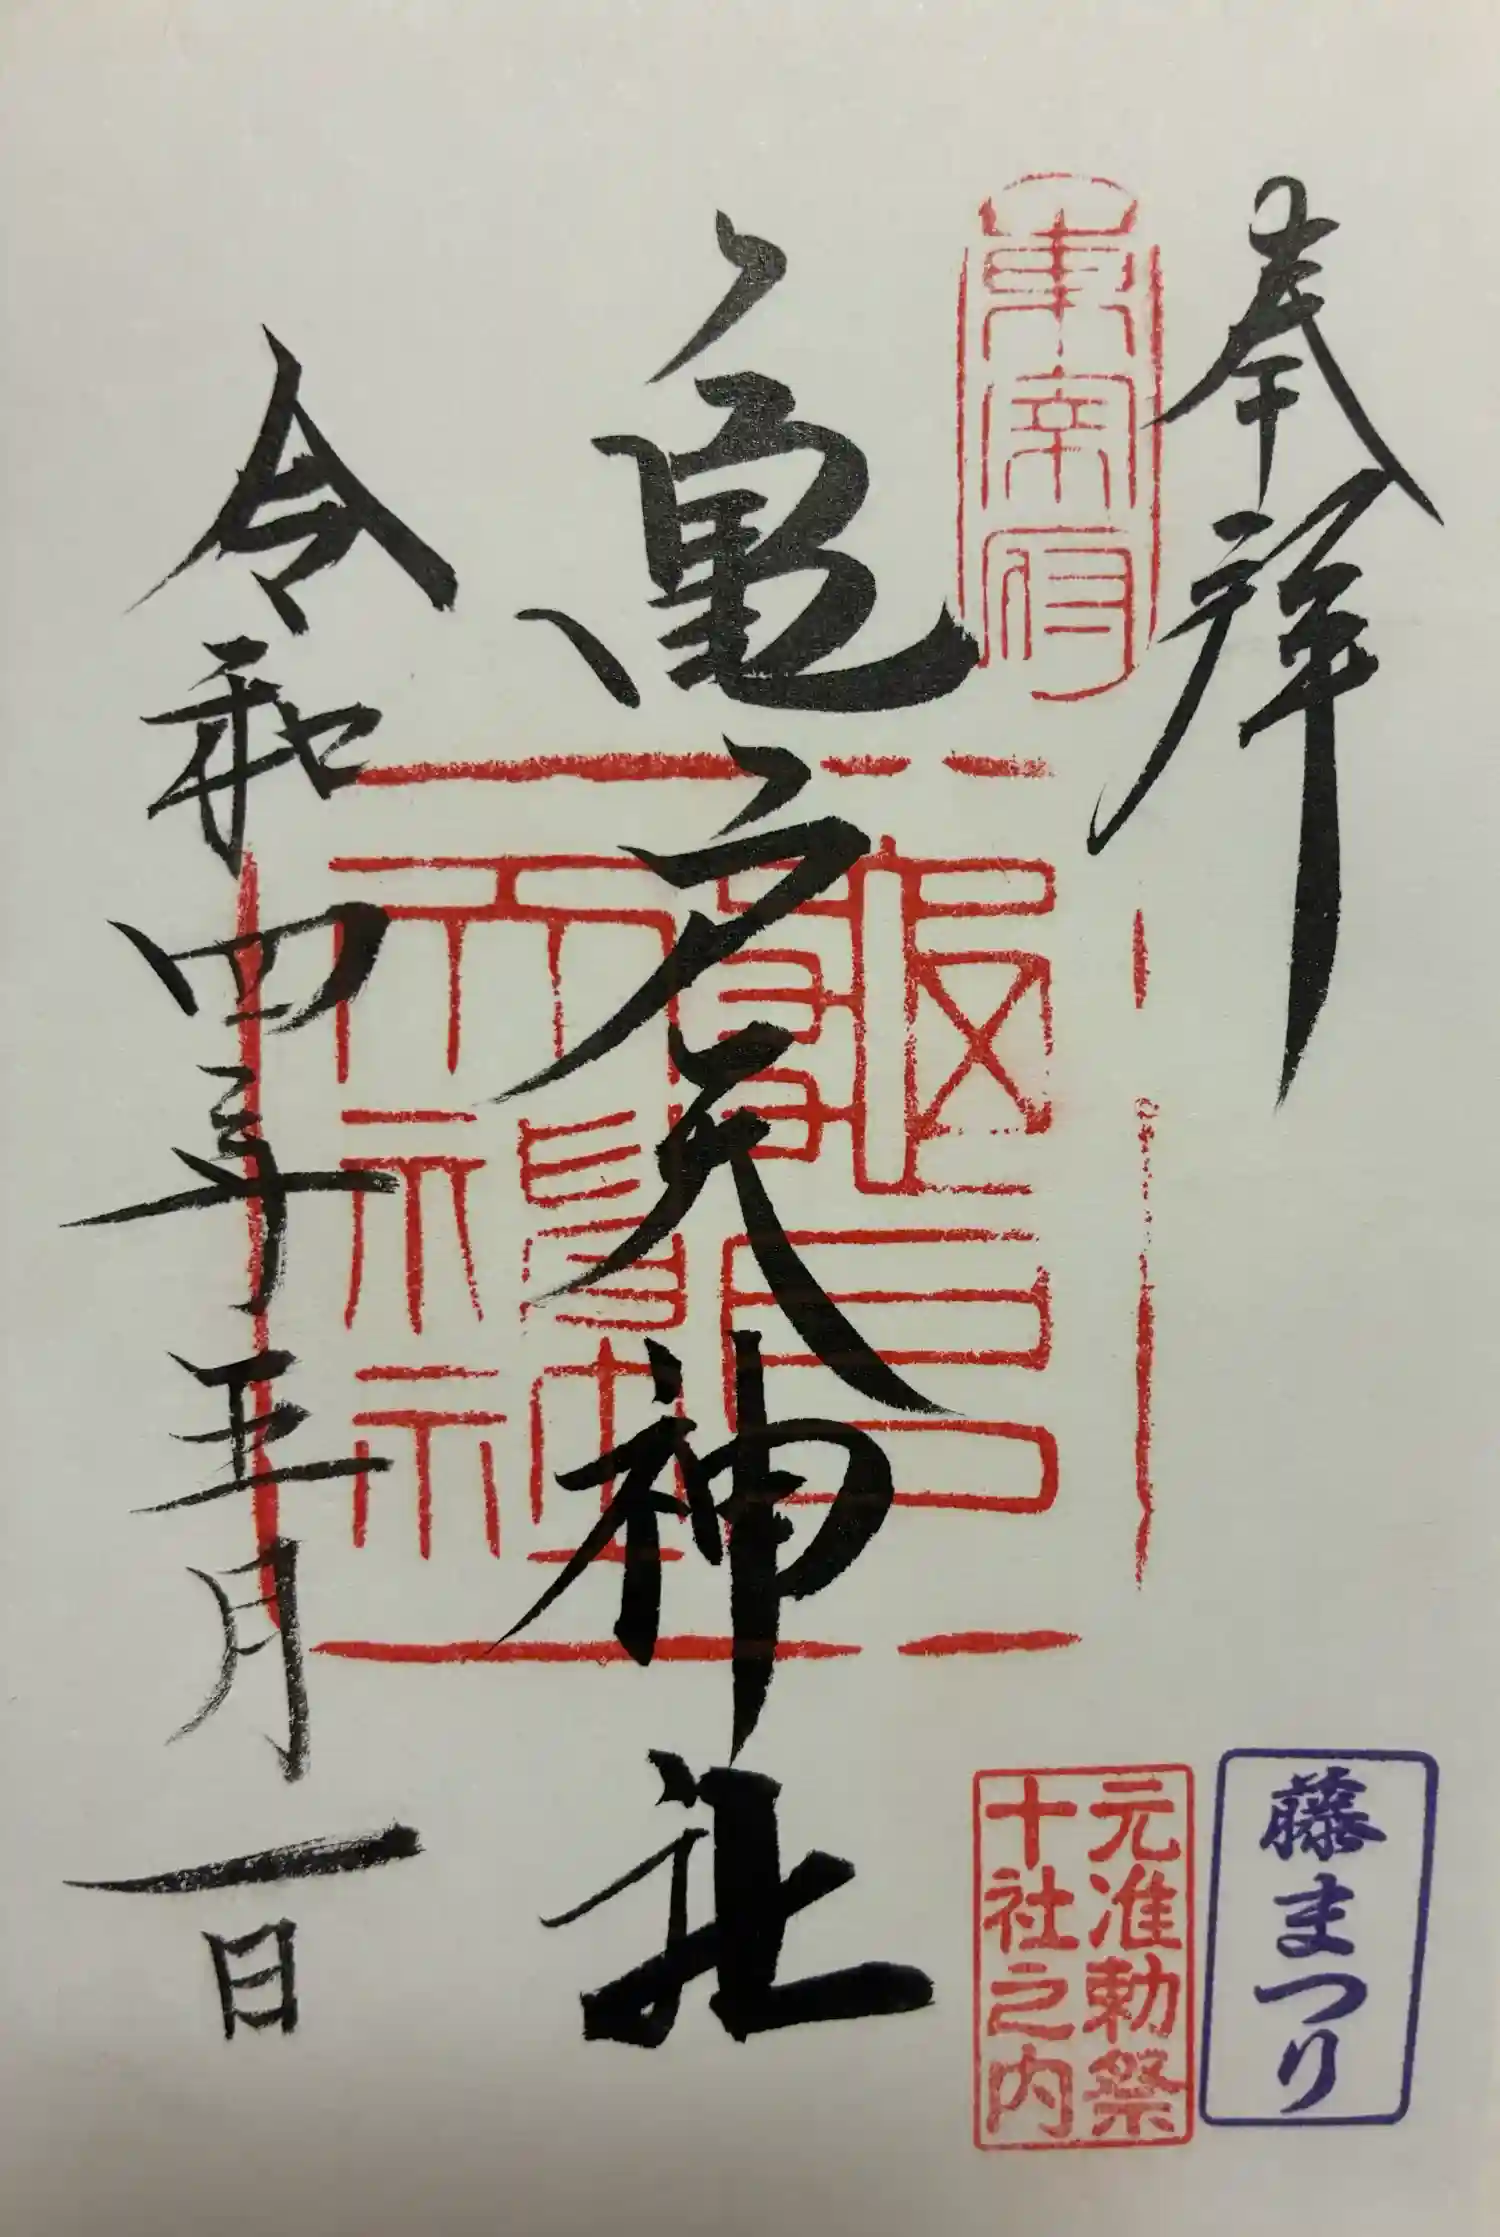 奉拝
東宰府
亀戸天神社
龜戸天神社
令和四年五月一日
藤まつり
元准勅祭
十社之内